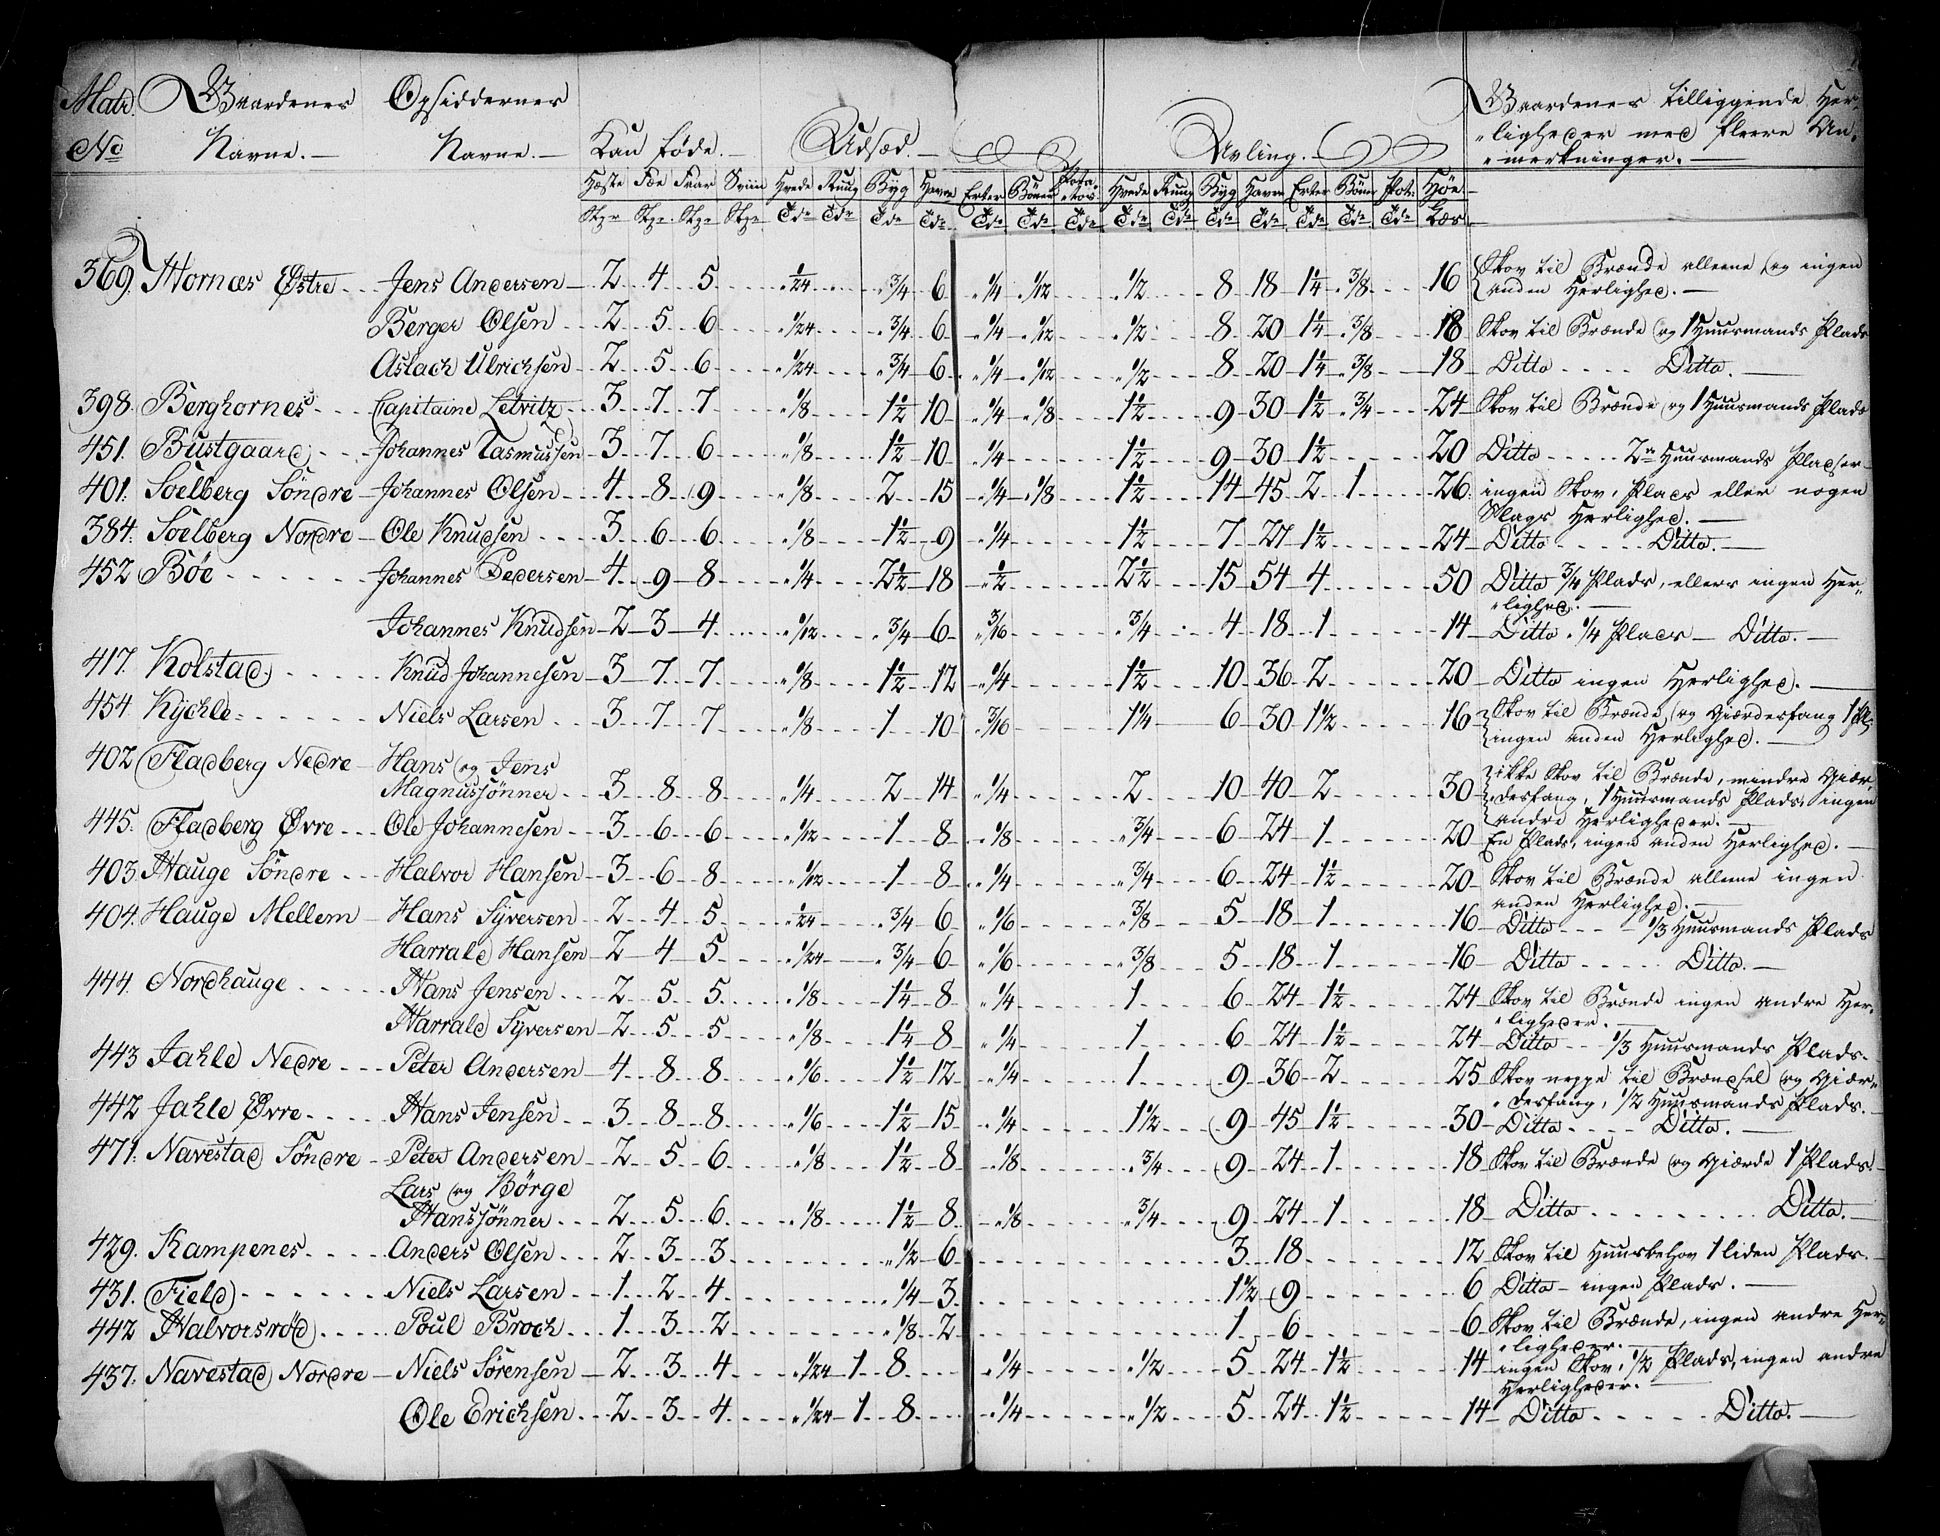 Matr. Gaardenes Opsiddernes Gaardenes tilliggende Her-
No Navne. Navne. Kan föde. Udsæd. Avling. ligheder med fleere An-
mærkninger.
Hæste Fæe Faar Sviin Hvede Ruug Byg Havre Erter Bönner Pota-tös Hvede Ruug Byg Havre Erter Bönner Pot: Höe
Stkr Stkr Stkr Stkr Tdr Tdr Tdr Tdr Tdr Tdr Tdr Tdr Tdr Tdr Tdr Tdr Tdr Tdr Læs
369. Hornæs Østre Jens Andersen 2 4 5 1/24 3/4 6 1/4 1/12 1/2 8 18 1 1/4 3/8 16 Skov til Brænde alleene og ingen
anden Herlighed.
Berger Olsen 2 5 6 1/24 3/4 6 1/4 1/12 1/2 8 20 1 1/4 3/8 18 Skov til Brænde og 1 Huusmands Plads
Aslach Ulrichsen 2 5 6 1/24 3/4 6 1/4 1/12 1/2 8 20 1 1/4 3/8 18 Ditto Ditto.
398. Berghornes Capitaine Letvitz 3 7 7 1/8 1 1/2 10 1/4 1/8 1 1/2 9 30 1 1/2 3/4 24 Skov til Brænde og 1 Huusmands Plads
451. Bustgaard Johannes Rasmussen 3 7 6 1/8 1 1/2 10 1/4 1 1/2 9 30 1 1/2 20 Ditto 2de Huusmands Pladser
401. Soelberg Söndre Johannes Olsen 4 8 9 1/8 2 15 1/4 1/8 1 1/2 14 45 2 1 26 ingen Skov, Plads eller nogen
Slags Herlighed.
384. Soelberg Nordre Ole Knudsen 3 6 6 1/8 1 1/2 9 1/4 1 1/2 7 27 1 1/2 24 Ditto Ditto.
452 Böe Johannes Pedersen 4 9 8 1/4 2 1/2 18 1/2 2 1/2 15 54 4 50 Ditto 3/4 Plads, ellers ingen Her-
lighed.
Johannes Knudsen 2 3 4 1/12 3/4 6 3/16 3/4 4 18 1 14 Ditto 1/4 Plads Ditto.
417. Kolstad Knud Johannesen 3 7 7 1/8 1 1/2 12 1/4 1 1/2 10 36 2 20 Ditto ingen Herlighed.
454. Kychle Niels Larsen 3 7 7 1/8 1 10 3/16 1 1/4 6 30 1 1/2 16 Skov til Brænde og Giærdesfang 1 Pl:
ingen anden Herlighed.
402 Fladberg Nedre Hans og Jens
Magnussönner 3 8 8 1/4 2 14 1/4 2 10 40 2 30 ikke Skov til Brænde, mindre Giær-
desfang, 1 Huusmands Plads, ingen
andre Herligheder.
445. Fladberg Øvre Ole Johannesen 3 6 6 1/12 1 8 1/8 3/4 6 24 1 20 En Plads, ingen anden Herlighed.
403 Hauge Söndre Halvor Hansen 3 6 8 1/12 1 8 1/4 3/4 6 24 1 1/2 20 Skov til Brænde alleene ingen
anden Herlighed.
404. Hauge Mellem Hans Syversen 2 4 5 1/24 3/4 6 1/6 3/8 5 18 1 16 Ditto 1/3 Huusmands Plads
Harrald Hansen 2 4 5 1/24 3/4 6 1/6 3/8 5 18 1 16 Ditto Ditto.
444. Nordhauge Hans Jensen 2 5 5 1/8 1 1/4 8 1/4 1 6 24 1 1/2 24 Skov til Brænde ingen andre Her-
ligheder.
Harrald Syversen 2 5 5 1/8 1 1/4 8 1/4 1 6 24 1 1/2 24 Ditto 1/3 Huusmands Plads.
443 Jahle Nedre Peter Andersen 4 8 8 1/6 1 1/2 12 1/4 1 9 36 2 25 Skov neppe til Brændsel og Giær-
desfang, 1/2 Huusmands Plads.
442 Jahle Øvre Hans Jensen 3 8 8 1/6 1 1/2 15 1/4 1 1/2 9 45 1 1/2 30 Ditto Ditto.
471. Navestad Söndre Peter Andersen 2 5 6 1/8 1 1/2 8 1/8 3/4 9 24 1 18 Skov til Brænde og Giærde 1 Plads.
Lars og Börge
Hanssönner 2 5 6 1/8 1 1/2 8 1/8 3/4 9 24 1 18 Ditto Ditto.
429. Kampenes Anders Olsen 2 3 3 1/2 6 3 18 12 Skov til Huusbehov 1 liden Plads.
431. Field Niels Larsen 1 2 4 1/4 3 1 1/2 9 6 Ditto ingen Plads.
442 Halvorsröd Poul Broch 1 3 2 1/8 2 1 6 6 Skov til Brænde, ingen andre Her-
ligheder.
437. Navestad Nordre Niels Sörensen 2 3 4 1/24 1 8 1/4 1/2 5 24 1 1/2 14 ingen Skov, 1/2 Plads, ingen andre
Herligheder.
Ole Erichsen 2 3 4 1/24 1 8 1/4 1/2 5 24 1 1/2 14 Ditto Ditto.